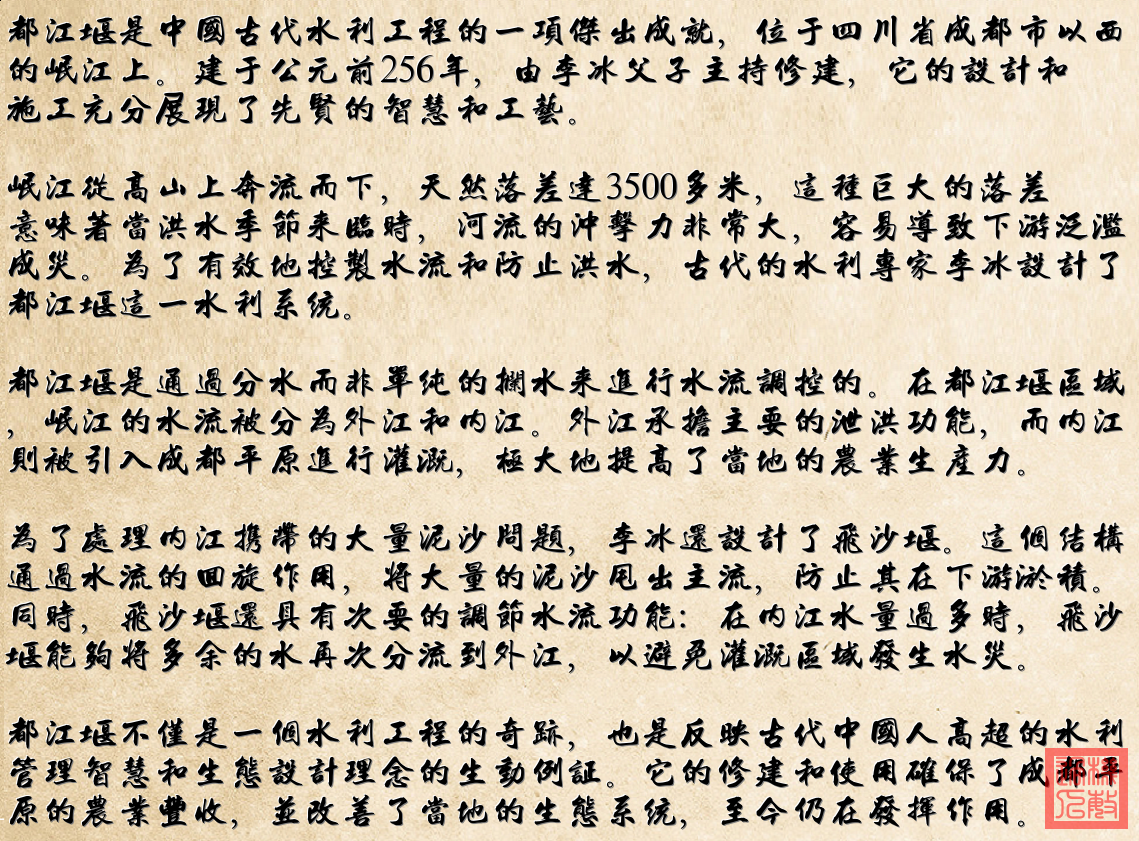 都江堰是中國古代水利工程的一項傑出成就，位于四川省成都市以西
的岷江上。建于公元前256年，由李冰父子主持修建，它的設計和
施工充分展現了先賢的智慧和工藝。
岷江從高山上奔流而下，天然落差達3500多米，這種巨大的落差
意味著當洪水季節来臨時，河流的沖擊力非常大，容易導致下游泛濫
成災。為了有效地控製水流和防止洪水，古代的水利專家李冰設計了
都江堰這一水利系统。
都江堰是通過分水而非單纯的攔水来進行水流調控的。在都江堰區域
，岷江的水流被分為外江和内江。外江承擔主要的泄洪功能，而内江
則被引入成都平原進行灌溉，極大地提高了當地的農業生產力。
為了處理内江携帶的大量泥沙問題，李冰還設計了飛沙堰。這個结構
通過水流的回旋作用，将大量的泥沙甩出主流，防止其在下游淤積。
同時，飛沙堰還具有次要的調節水流功能：在内江水量過多時，飛沙
堰能夠将多余的水再次分流到外江，以避免灌溉區域發生水災。
都江堰不僅是一個水利工程的奇跡，也是反映古代中國人高超的水利
管理智慧和生態設計理念的生動例証。它的修建和使用確保了成都平
原的農業豐收，並改善了當地的生態系统，至今仍在發揮作用。